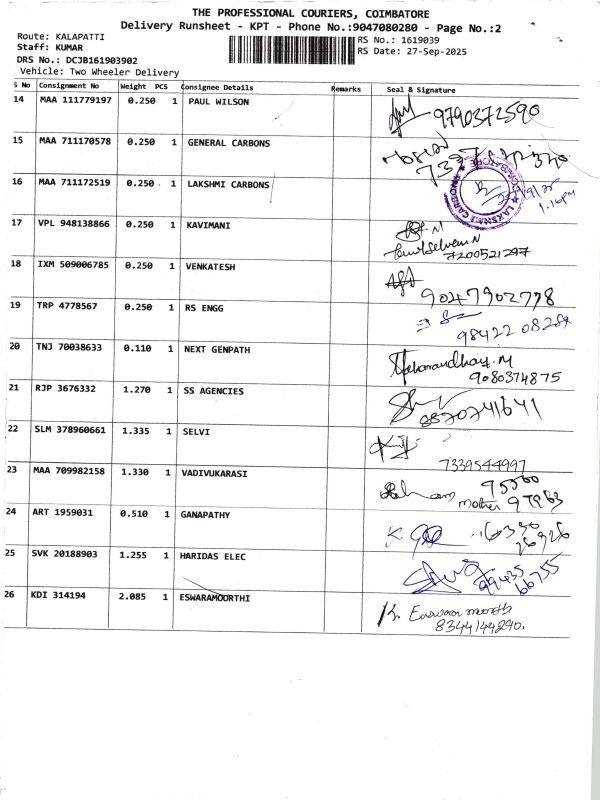 THE PROFESSIONAL COURIERS, COIMBATORE
Delivery Runsheet - KPT - Phone No.:9047080280 - Page No.:2
Route: KALAPATTI
RS No.: 1619039
Staff: KUMAR
RS Date: 27-Sep-2025
DRS No.: DCJB161903902
Vehicle: Two Wheeler Delivery
S No Consignment No Weight PCS Consignee Details Remarks Seal & Signature
14 MAA 111779197 0.250 1 PAUL WILSON 9790372590
15 MAA 711170578 0.250 1 GENERAL CARBONS
16 MAA 711172519 0.250 1 LAKSHMI CARBONS
1.16pm
17 VPL 948138866 0.250 1 KAVIMANI
Tamilselvan N
7200521297
18 IXM 509006785 0.250 1 VENKATESH
9047902778
19 TRP 4778567 0.250 1 RS ENGG
98422 08289
20 TNJ 70038633 0.110 1 NEXT GENPATH
9080374875
21 RJP 3676332 1.270 1 SS AGENCIES
8870741641
22 SLM 378960661 1.335 1 SELVI
7339544997
23 MAA 709982158 1.330 1 VADIVUKARASI
mother 97963
24 ART 1959031 0.510 1 GANAPATHY
26926
25 SVK 20188903 1.255 1 HARIDAS ELEC
99435
66755
26 KDI 314194 2.085 1 ESWARAMOORTHI
K. Eswaramoorthi
8344144290.